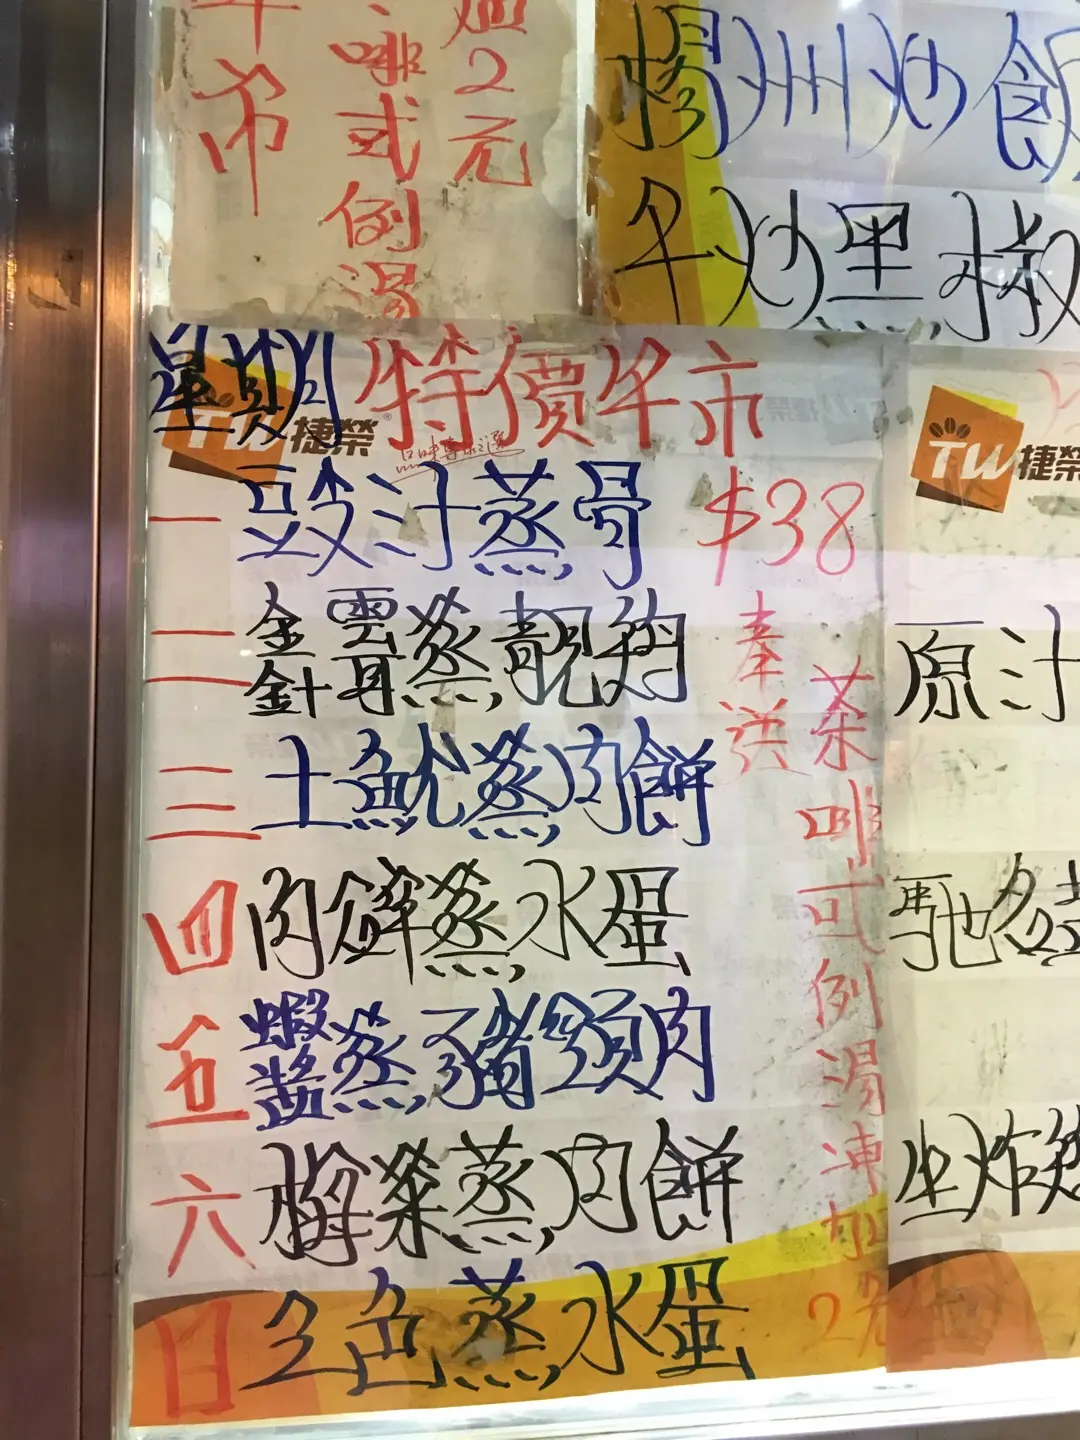 午市
啡或例湯
2元
楊州炒飯
牛炒黑椒
星期 特價午市
TW捷榮®
品味專求之選
一 豉汁蒸骨 $38
二 金針雲耳蒸靚鸡
三 土魷蒸肉餅
四 肉鬆蒸水蛋
五 蝦醬蒸豬頸肉
六 梅菜蒸肉餅
日 三色蒸水蛋
奉送
茶啡或例湯凍加2元
TW捷榮
原汁